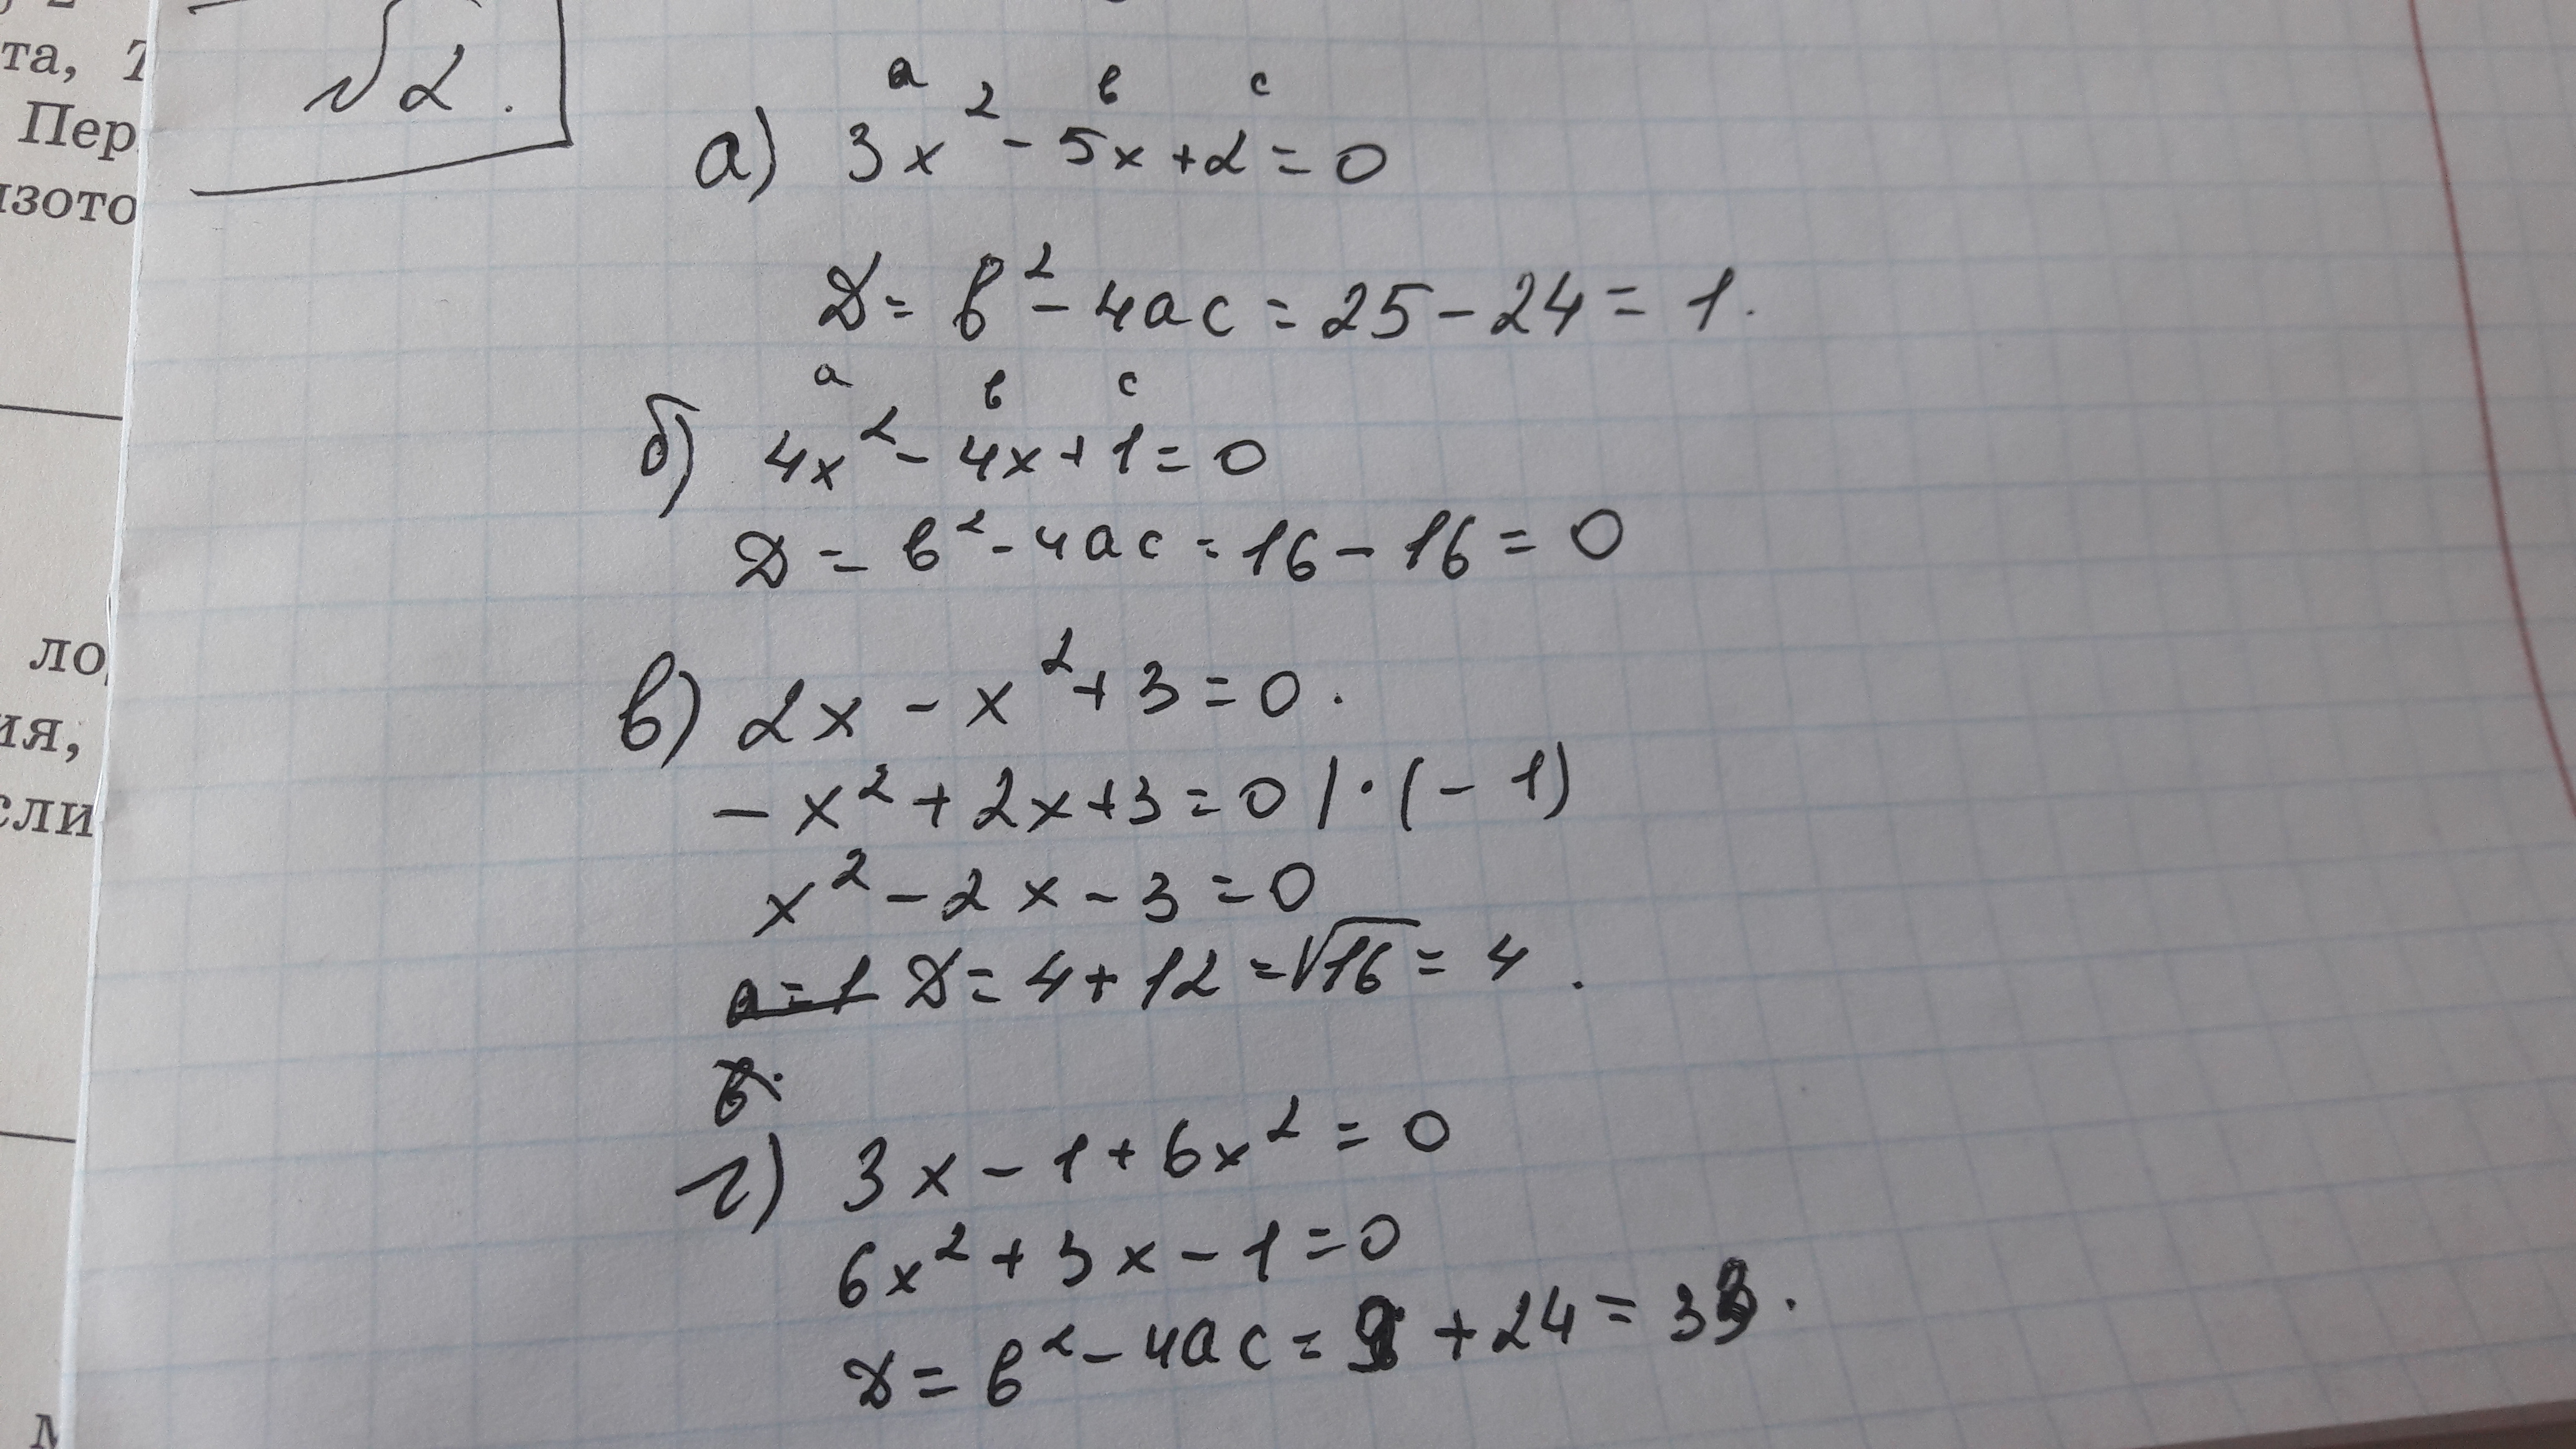 та,
Пер
изото
ло
ия,
сли
√2.
a b c
а) 3x² - 5x + 2 = 0
D = b² - 4ac = 25 - 24 = 1.
a b c
б) 4x² - 4x + 1 = 0
D = b² - 4ac = 16 - 16 = 0
в) 2x - x² + 3 = 0.
- x² + 2x + 3 = 0 | · (- 1)
x² - 2x - 3 = 0
a = 1 D = 4 + 12 = √16 = 4.
г) 3x - 1 + 6x² = 0
6x² + 3x - 1 = 0
D = b² - 4ac = 9 + 24 = 33.